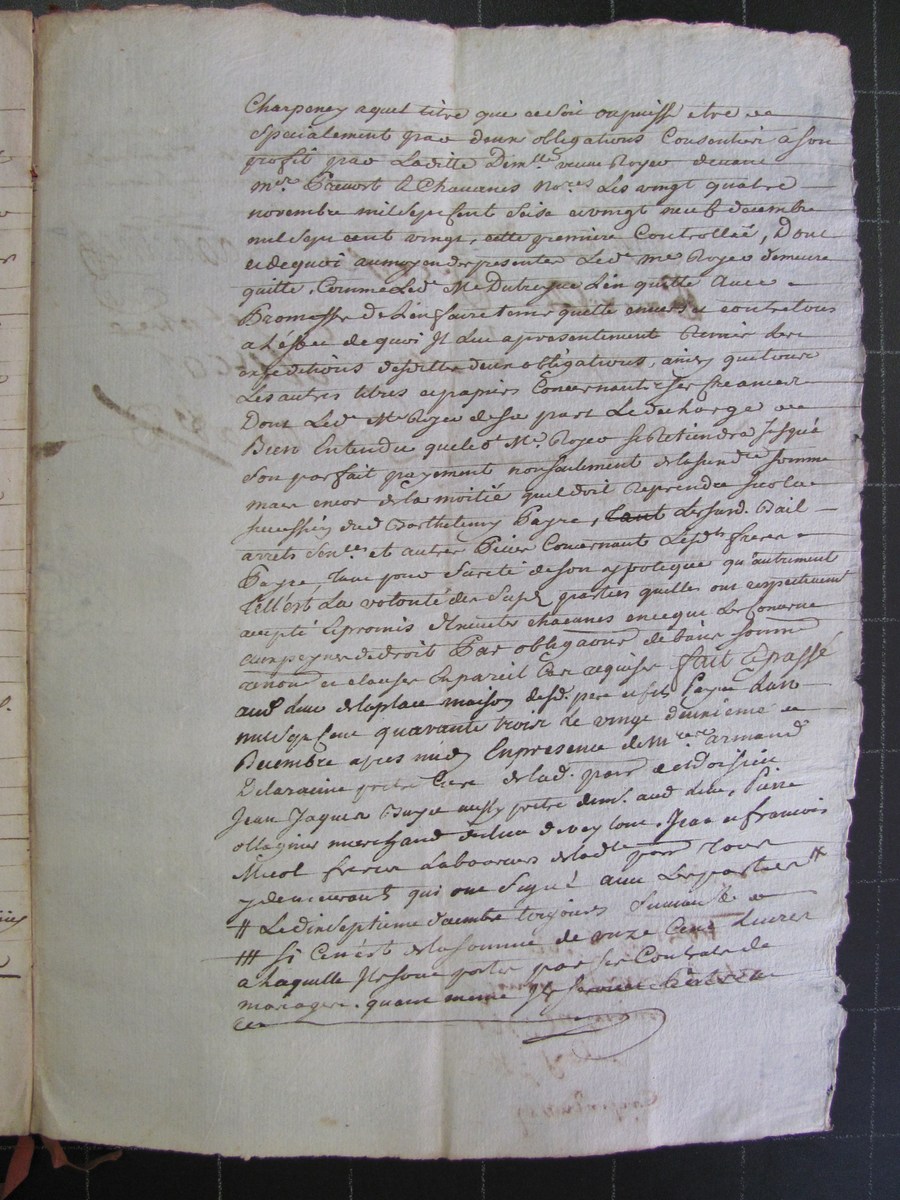 Charpeney a quel titre que ce soit ou puisse etre et
Specialement par deux obligations Consenties a son
profit par Laditte Dem.lle veuve Royer devant
m.re Prevost & Chavanes No.res Les vingt quatre
novembre mil sept cent seise et vingt neuf decembre
mil sept cent vingt, cette premiere Controllée, Dont
et de quoi au moyen des presentes Led. m.e Royer demeure
quitte, Comme Led. M.e Len quitte Avec
Promesse de Len faire tenir quitte envers et contre tous
a Leffet de quoi Il Lui a presentement Remis Les
expeditions desdittes deux obligations, ainsy que tous
Les autres titres et papiers Concernants Ses creances
Dont Led. M.e Royer de sa part Le decharge et
Bien Entendu que led. M.e Royer se Retiendra Jusqu'à
Son parfait payement non seulement de la susd.te somme
mais encor de la moitié quel doit Reprendre sur la
succession dud. Barthelemy Payre, tant Les susd. Bail
arrets Sen.ces et autres Pieces Concernants Lesd.ts freres
Payre, tant pour Sureté de son hypoteque qu'autrement
telle est La volonté des Susd. parties quelles ont respectivement
accepté & promis d'Executer chacunes en ce que Les Concerne
aux peynes de droit Par obliga.ons de biens
renon.ons et clauses En pareil Cas requises fait & passé
aud. lieu de la place maison desd. pere et fils Payre Lan
mil sept Cent quarante trois Le vingt deuxieme
Decembre apres midy En presence de M.re armand
Delaraime pretre Curé de lad. par.
Jean Jaques pretre dem.t aud. Lieu, Pierre
ollagnier marchand du lieu de Jean et francois
Micol freres Laboureurs de lad.te par tous
y demeurants qui ont Signé avec Les parties #
# Le dix septieme decembre toujours Suivant &
### Si Cen'est de la somme de onze Cent Livres
a Laquelle Ils sont portés par Les Contrats de
mariages. quand meme Ils